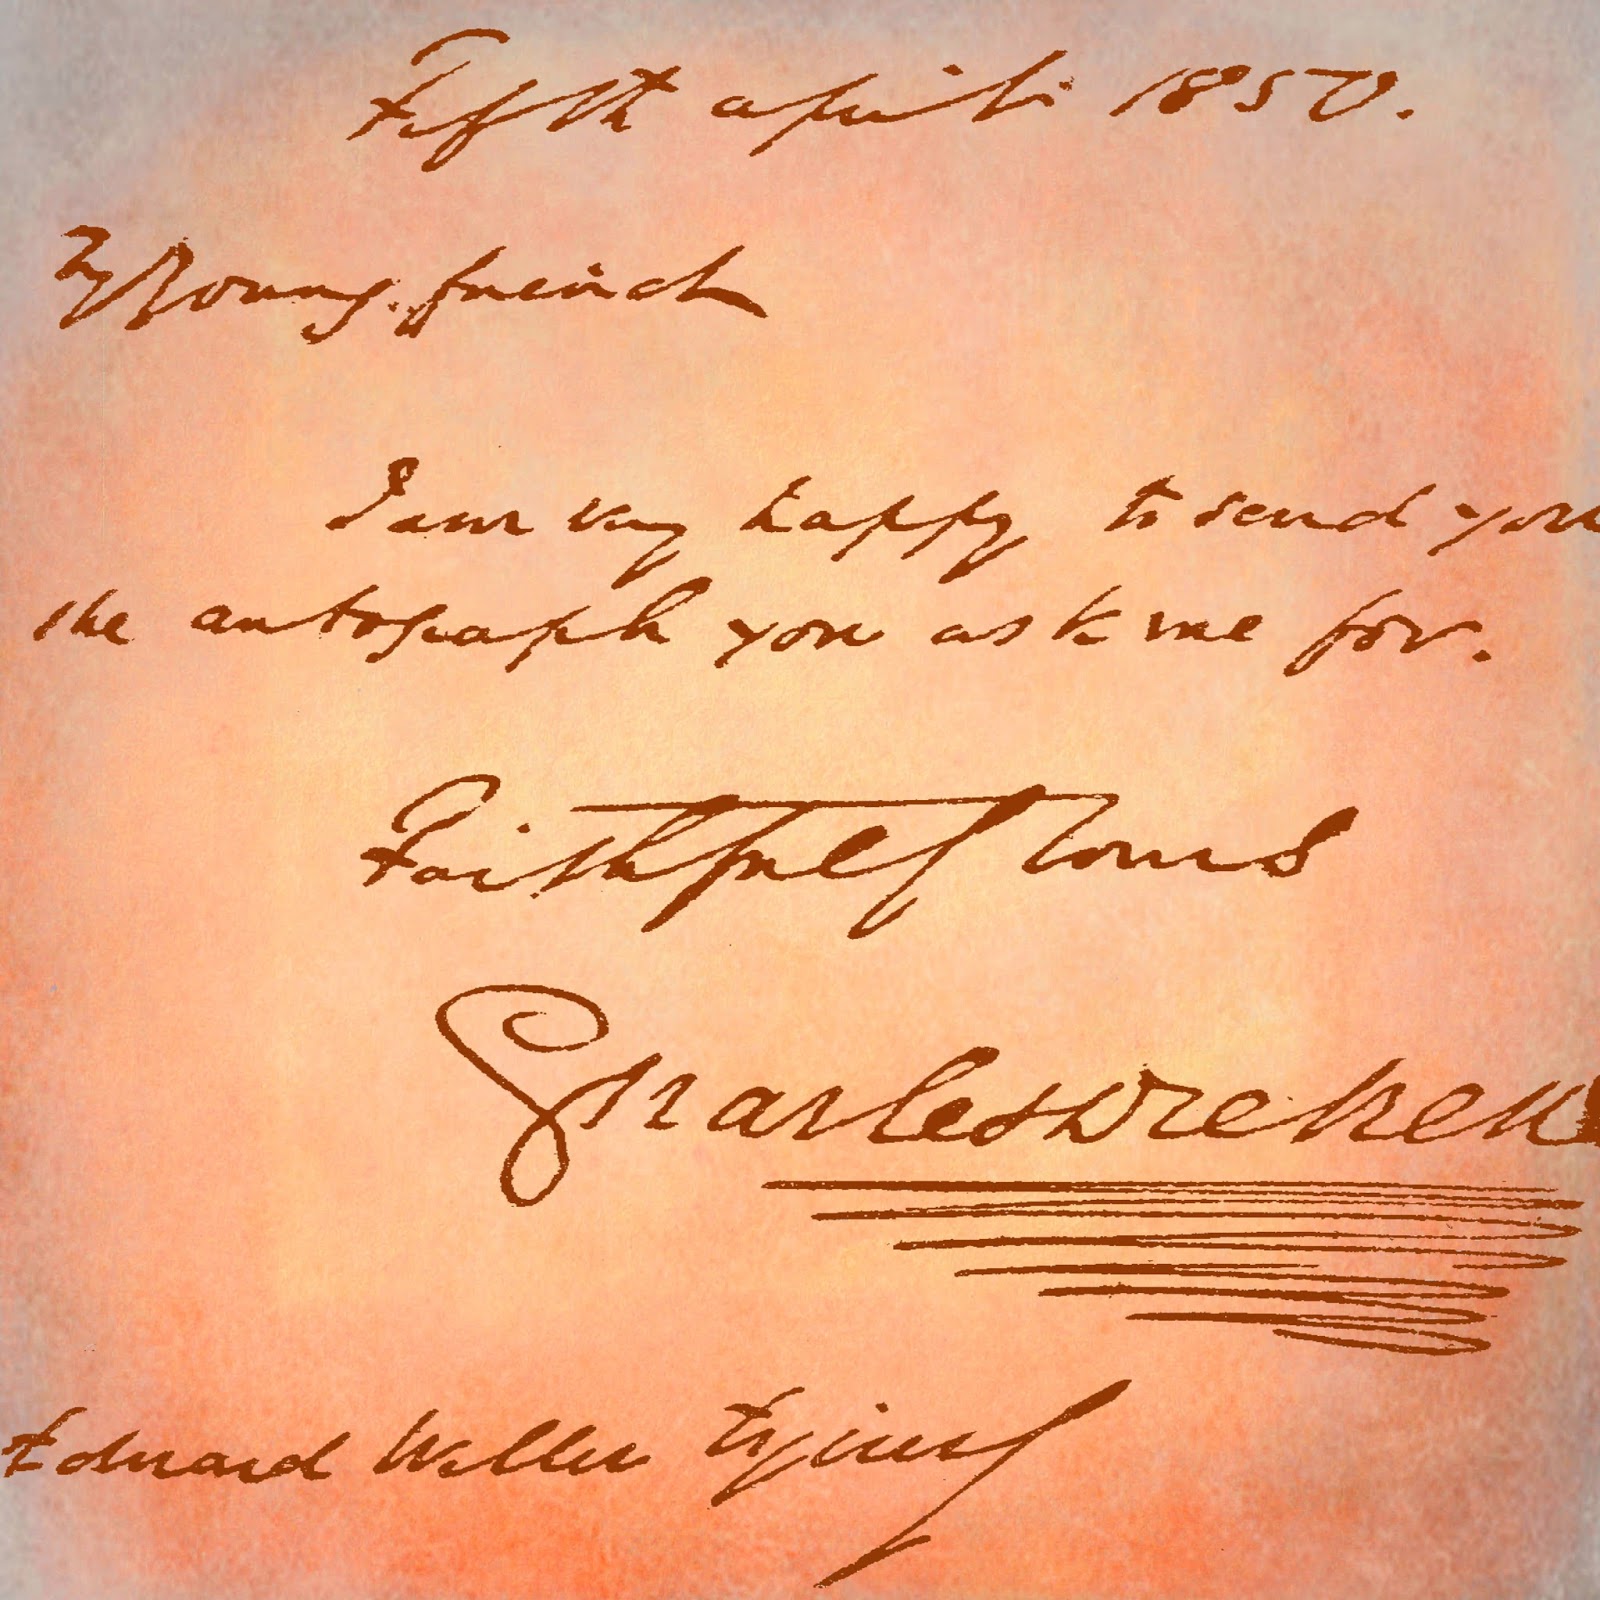 Fifth April 1850.
My Young friend
I am very happy to send you
the autograph you ask me for.
Faithfully Yours
Charles Dicken
Edward Walker Esquire